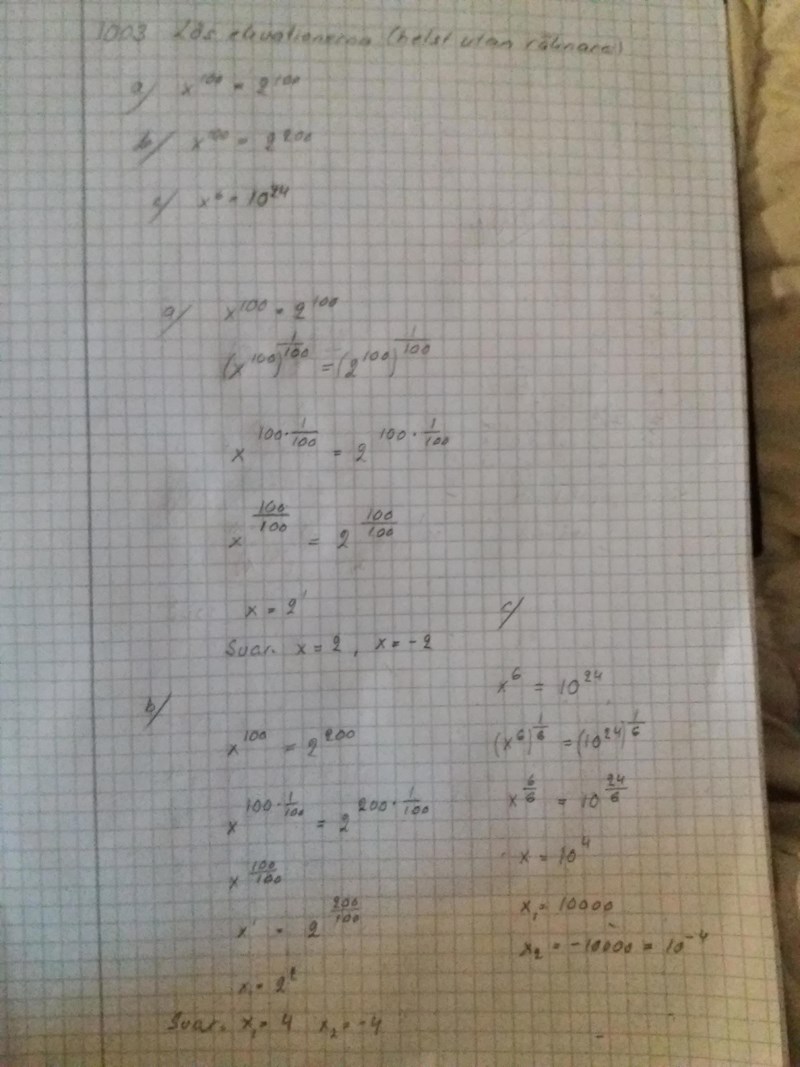 1003 Lös ekvationerna (helst utan räknare)
a) x^100 = 2^100
b) x^100 = 2^200
c) x^6 = 10^24
a) x^100 = 2^100
(x^100)^(1/100) = (2^100)^(1/100)
x^(100·1/100) = 2^(100·1/100)
x^(100/100) = 2^(100/100)
x = 2^1
Svar. x = 2, x = -2
b)
x^100 = 2^200
x^(100·1/100) = 2^(200·1/100)
x^(100/100)
x^1 = 2^(200/100)
x₁ = 2^2
Svar. x₁ = 4 x₂ = -4
c)
x^6 = 10^24
(x^6)^(1/6) = (10^24)^(1/6)
x^(6/6) = 10^(24/6)
x = 10^4
x₁ = 10000
x₂ = -10000 = 10^-4